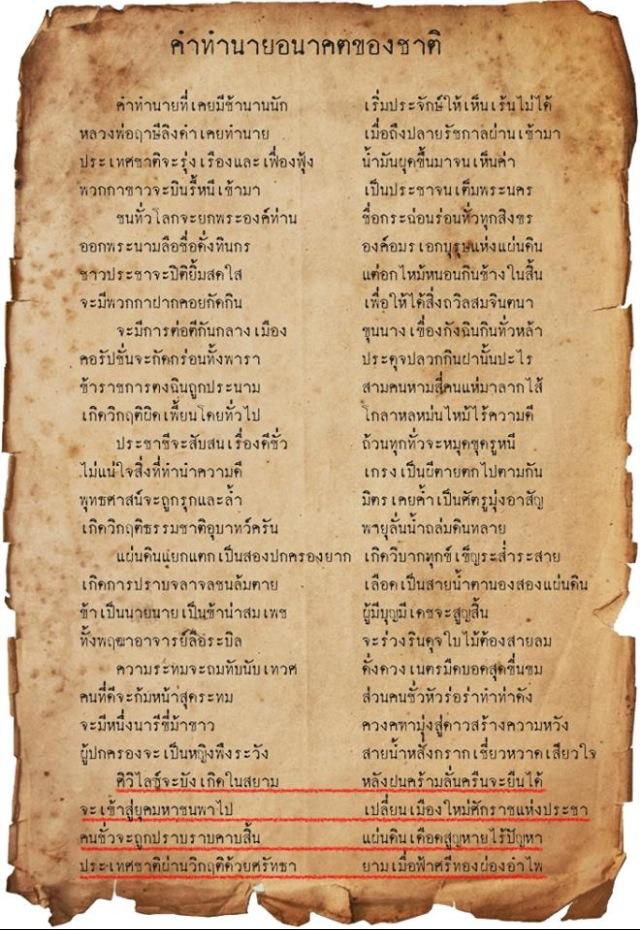 คำทำนายอนาคตของชาติ
คำทำนายที่เคยมีช้านานนัก เริ่มประจักษ์ให้เห็นเร้นไม่ได้
หลวงพ่อฤาษีลิงดำเคยทำนาย เมื่อถึงปลายรัชกาลผ่านเข้ามา
ประเทศชาติจะรุ่งเรืองและเฟื่องฟุ้ง น้ำมันผุดขึ้นมาจนเห็นค่า
พวกกาขาวจะบินรี้หนีเข้ามา เป็นประชาจนเต็มพระนคร
ชนทั่วโลกจะยกพระองค์ท่าน ชื่อกระฉ่อนร่อนทั่วทุกสิงขร
ออกพระนามลือชื่อดั่งทินกร องค์อมรเอกบุรุษแห่งแผ่นดิน
ชาวประชาจะปิติยิ้มสดใส แต่อกไหม้หนอนกินข้างในสิ้น
จะมีพวกกาฝากคอยกัดกิน เพื่อให้ได้สิ่งถวิลสมจินตนา
จะมีการต่อตีกันกลางเมือง ขุนนางเขื่องกังฉินกินทั่วหล้า
คอรัปชั่นจะกัดกร่อนทั้งพารา ประดุจปลวกกินฝานั้นปะไร
ข้าราชการตงฉินถูกประนาม สามคนหามสี่คนแห่มาลากไส้
เกิดวิกฤติผิดเพี้ยนโดยทั่วไป โกลาหลหม่นไหม้ไร้ความดี
ประชาชีจะสับสนเรื่องดีชั่ว ถ้วนทุกทั่วจะหมุดขุดรูหนี
ไม่แน่ใจสิ่งที่ทำนำความดี เกรงเป็นผีตายตกไปตามกัน
พุทธศาสน์จะถูกรุกและล้ำ มิตรเคยค้ำเป็นศัตรูมุ่งอาสัญ
เกิดวิกฤติธรรมชาติอุบาทว์ครัน พายุลั่นน้ำถล่มดินทลาย
แผ่นดินแยกแตกเป็นสองปกครองยาก เกิดวิบากทุกข์เข็ญระส่ำระสาย
เกิดการปราบจลาจลชนล้มตาย เลือดเป็นสายน้ำตานองสองแผ่นดิน
ข้าเป็นนายนายเป็นข้าน่าสมเพช ผู้มีบุญมีเดชจะสูญสิ้น
ทั้งพฤฒาอาจารย์ลือระบิล จะร่วงรินดุจใบไม้ต้องสายลม
ความระทมจะถมทับนับเทวศ ดั่งดวงเนตรมืดบอดสุดขื่นขม
คนที่ดีจะก้มหน้าสุดระทม ส่วนคนชั่วหัวร่อร่าทำท่าดัง
จะมีหนึ่งนารีขี่ม้าขาว ควงคทามุ่งสู่ดาวสร้างความหวัง
ผู้ปกครองจะเป็นหญิงพึงระวัง สายน้ำหลั่งกรากเชี่ยวหวาดเสียวใจ
ศิวิไลซ์จะบังเกิดในสยาม หลังฝนครามลั่นครืนจะยืนได้
จะเข้าสู่ยุคมหาชนพาไป เปลี่ยนเมืองใหม่ศักราชแห่งประชา
คนชั่วจะถูกปราบราบคาบสิ้น แผ่นดินเดือดสูญหายไร้ปัญหา
ประเทศชาติผ่านวิกฤติด้วยศรัทธา ยามเมื่อฟ้าศรีทองผ่องอำไพ